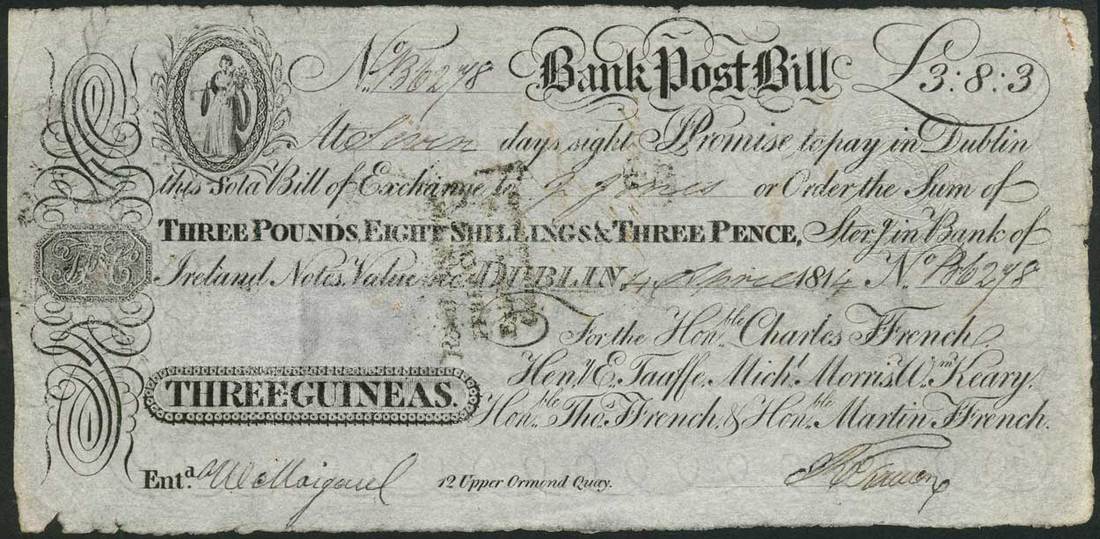 No. B6278 Bank Post Bill £3:8:3
At Seven days sight I Promise to pay in Dublin
this Sola Bill of Exchange to J Jones or Order the Sum of
THREE POUNDS, EIGHT SHILLINGS & THREE PENCE, Ster.g in Bank of
Ireland Notes, Value rec.d DUBLIN 4 April 1814 No. B6278
For the Hon.ble Charles Ffrench
Hen.y E. Taaffe, Mich.l Morris, W.m Keary,
THREE GUINEAS. Hon.ble Tho.s Ffrench, & Hon.ble Martin Ffrench.
Ent.d 12 Upper Ormond Quay.